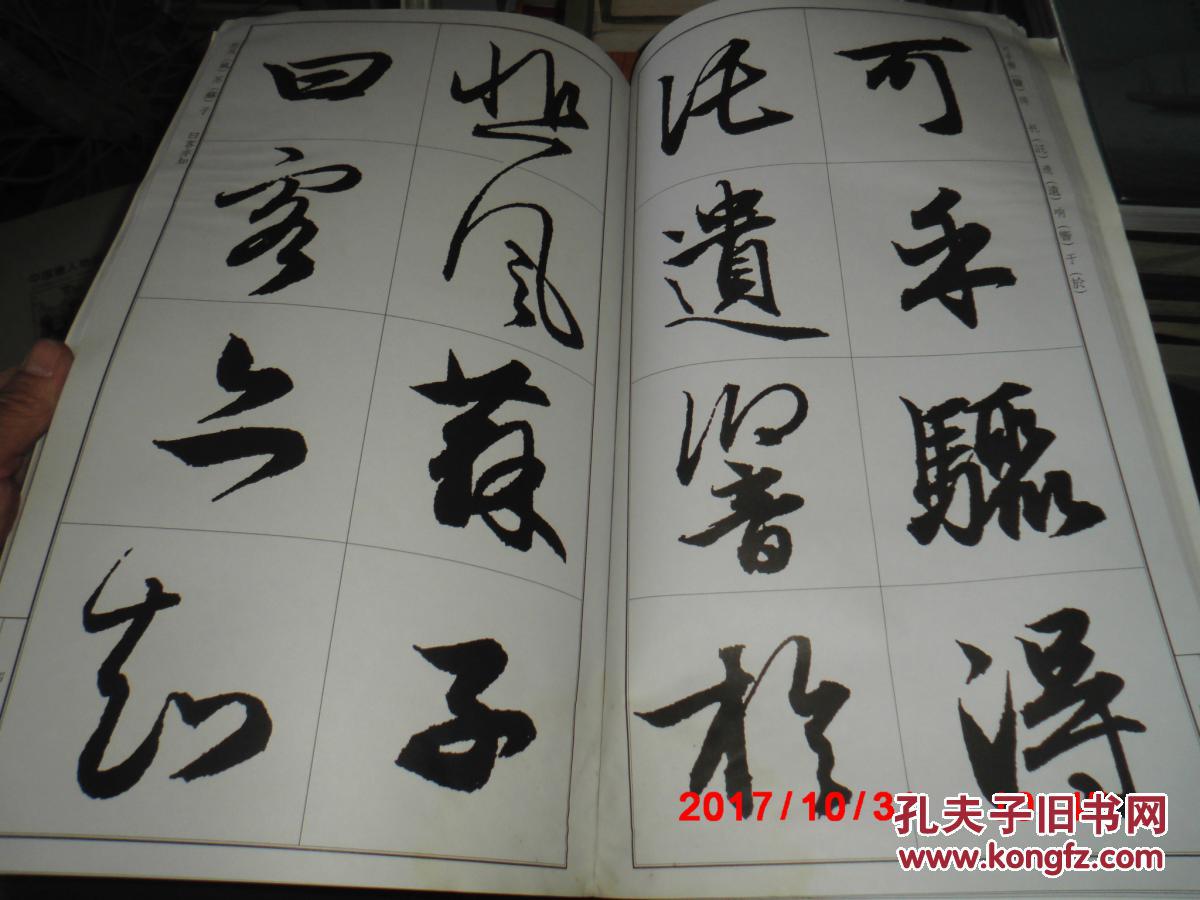 可乎驟得
託遺響於
悲風蘇子
曰客亦知
2017/10/3
孔夫子旧书网
www.kongfz.com